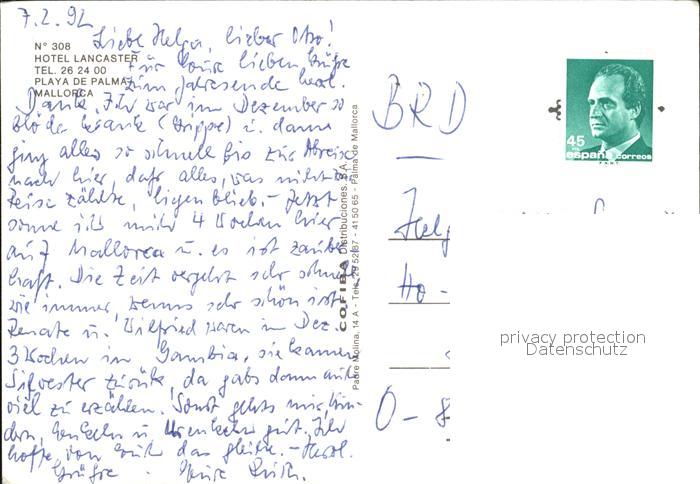 7.2.92
Liebe Helga, lieber Otto!
N° 308
HOTEL LANCASTER
TEL. 26 24 00
PLAYA DE PALMA
MALLORCA
Für Eure lieben Grüße
zum Jahresende herzl.
Dank. Ich war im Dezember so
blöde krank (Grippe) u. dann
ging alles so schnell bis zur Abreise
nach hier, daß alles, was nicht z.
Reise zählte, liegen blieb. - Jetzt
sonne ich mich 4 Wochen hier
auf Mallorca u. es ist zauber
haft. Die Zeit vergeht sehr schnell
wie immer, wenns sehr schön ist.
Renate u. Wilfried waren im Dez.
3 Wochen in Gambia, sie kamen
Silvester zurück, da gabs dann auch
viel zu erzählen. Sonst gehts mir, Kin-
dern, Enkeln u. Urenkeln gut. Ich
hoffe, von Euch das gleiche. - Herzl.
Grüße. Eure
COFIBA Distribuciones, S.A.
Padre Molina, 14 A - Tels. 29 52 87 - 41 50 65 - Palma de Mallorca
BRD
45
PTS
españa correos
F.N.M.T.
Helg
Ho-
O-8
privacy protection
Datenschutz